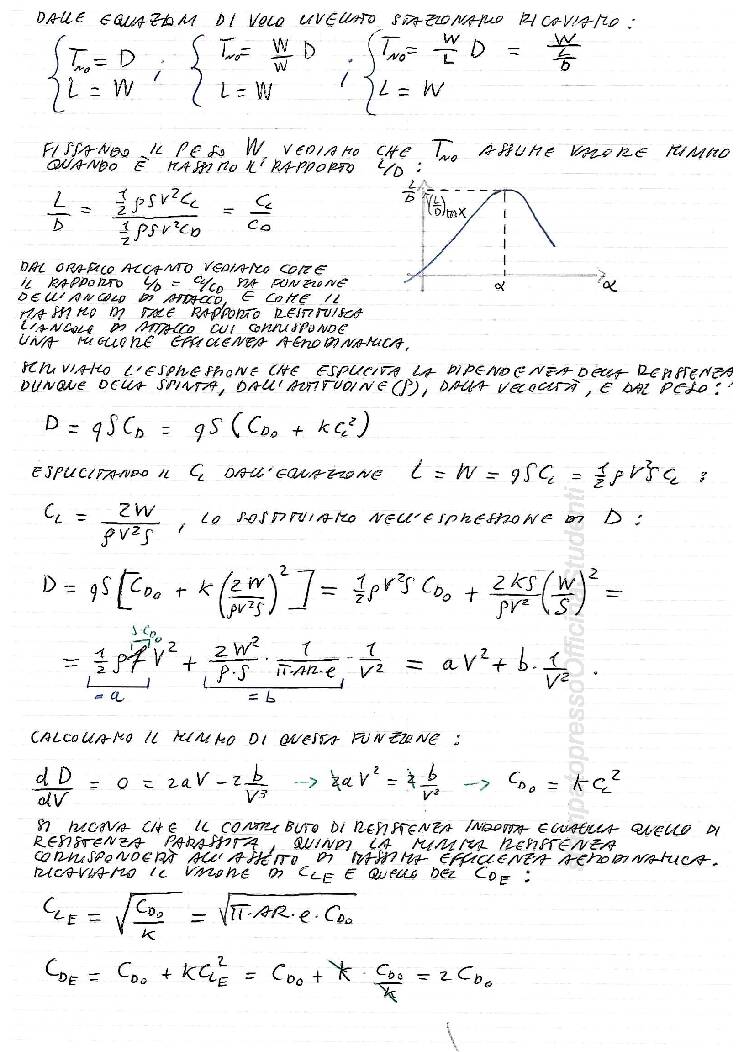 DALLE EQUAZIONI DI VOLO LIVELLATO STAZIONARIO RICAVIAMO:
{ T_NO = D ; { T_NO = W/W D ; { T_NO = W/L D = W/(L/D)
L = W L = W L = W
FISSANDO IL PESO W VEDIAMO CHE T_NO ASSUME VALORE MINIMO
QUANDO È MASSIMO IL RAPPORTO L/D :
L/D = (½ρSV²C_L)/(½ρSV²C_D) = C_L/C_D
L/D (L/D)MAX
α α
DAL GRAFICO ACCANTO VEDIAMO COME
IL RAPPORTO L/D = C_L/C_D SIA FUNZIONE
DELL'ANGOLO DI ATTACCO, E COME IL
MASSIMO DI TALE RAPPORTO RESTITUISCA
L'ANGOLO DI ATTACCO CUI CORRISPONDE
UNA MIGLIORE EFFICIENZA AERODINAMICA.
SCRIVIAMO L'ESPRESSIONE CHE ESPLICITA LA DIPENDENZA DELLA RESISTENZA
DUNQUE DELLA SPINTA, DALL'ALTITUDINE (ρ), DALLA VELOCITÀ, E DAL PESO:
D = qSC_D = qS (C_D0 + kC_L²)
ESPLICITANDO IL C_L DALL'EQUAZIONE L = W = qSC_L = ½ρV²SC_L :
C_L = 2W/(ρV²S) , LO SOSTITUIAMO NELL'ESPRESSIONE DI D :
D = qS [C_D0 + k (2W/(ρV²S))²] = ½ρV²S C_D0 + 2kS/(ρV²) (W/S)² =
SC_D0
= ½ρfV² + 2W²/(ρ·S) · 1/(π·AR·e) · 1/V² = aV² + b · 1/V² .
= a = b
CALCOLIAMO IL MINIMO DI QUESTA FUNZIONE :
dD/dV = 0 = 2aV - 2 b/V³ → 2aV² = 2 b/V² → C_D0 = kC_L²
SI RICAVA CHE IL CONTRIBUTO DI RESISTENZA INDOTTA EGUAGLIA QUELLO DI
RESISTENZA PARASSITA, QUINDI LA MINIMA RESISTENZA
CORRISPONDERÀ ALL'ASSETTO DI MASSIMA EFFICIENZA AERODINAMICA.
RICAVIAMO IL VALORE DI C_LE E QUELLO DEL C_DE :
C_LE = √(C_D0/k) = √(π·AR·e·C_D0)
C_DE = C_D0 + kC_LE² = C_D0 + k · C_D0/k = 2C_D0